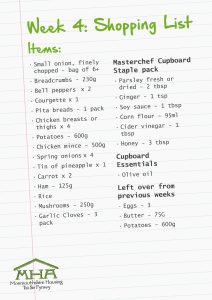 Week 4: Shopping List
Items:
· Small onion, finely
chopped - bag of 6+
· Breadcrumbs - 230g
· Bell peppers x 2
· Courgette x 1
· Pita breads - 1 pack
· Chicken breasts or
thighs x 4
· Potatoes - 600g
· Chicken mince - 500g
· Spring onions x 4
· Tin of pineapple x 1
· Carrot x 2
· Ham - 125g
· Rice
· Mushrooms - 250g
· Garlic Cloves - 3
pack
Masterchef Cupboard
Staple pack
· Parsley fresh or
dried - 2 tbsp
· Ginger - 1 tsp
· Soy sauce - 1 tbsp
· Corn flour - 95ml
· Cider vinegar - 1
tbsp
· Honey - 3 tbsp
Cupboard
Essentials
· Olive oil
Left over from
previous weeks
· Eggs - 1
· Butter - 75G
· Potatoes - 600g
MHA
Monmouthshire Housing
Tai Sir Fynwy